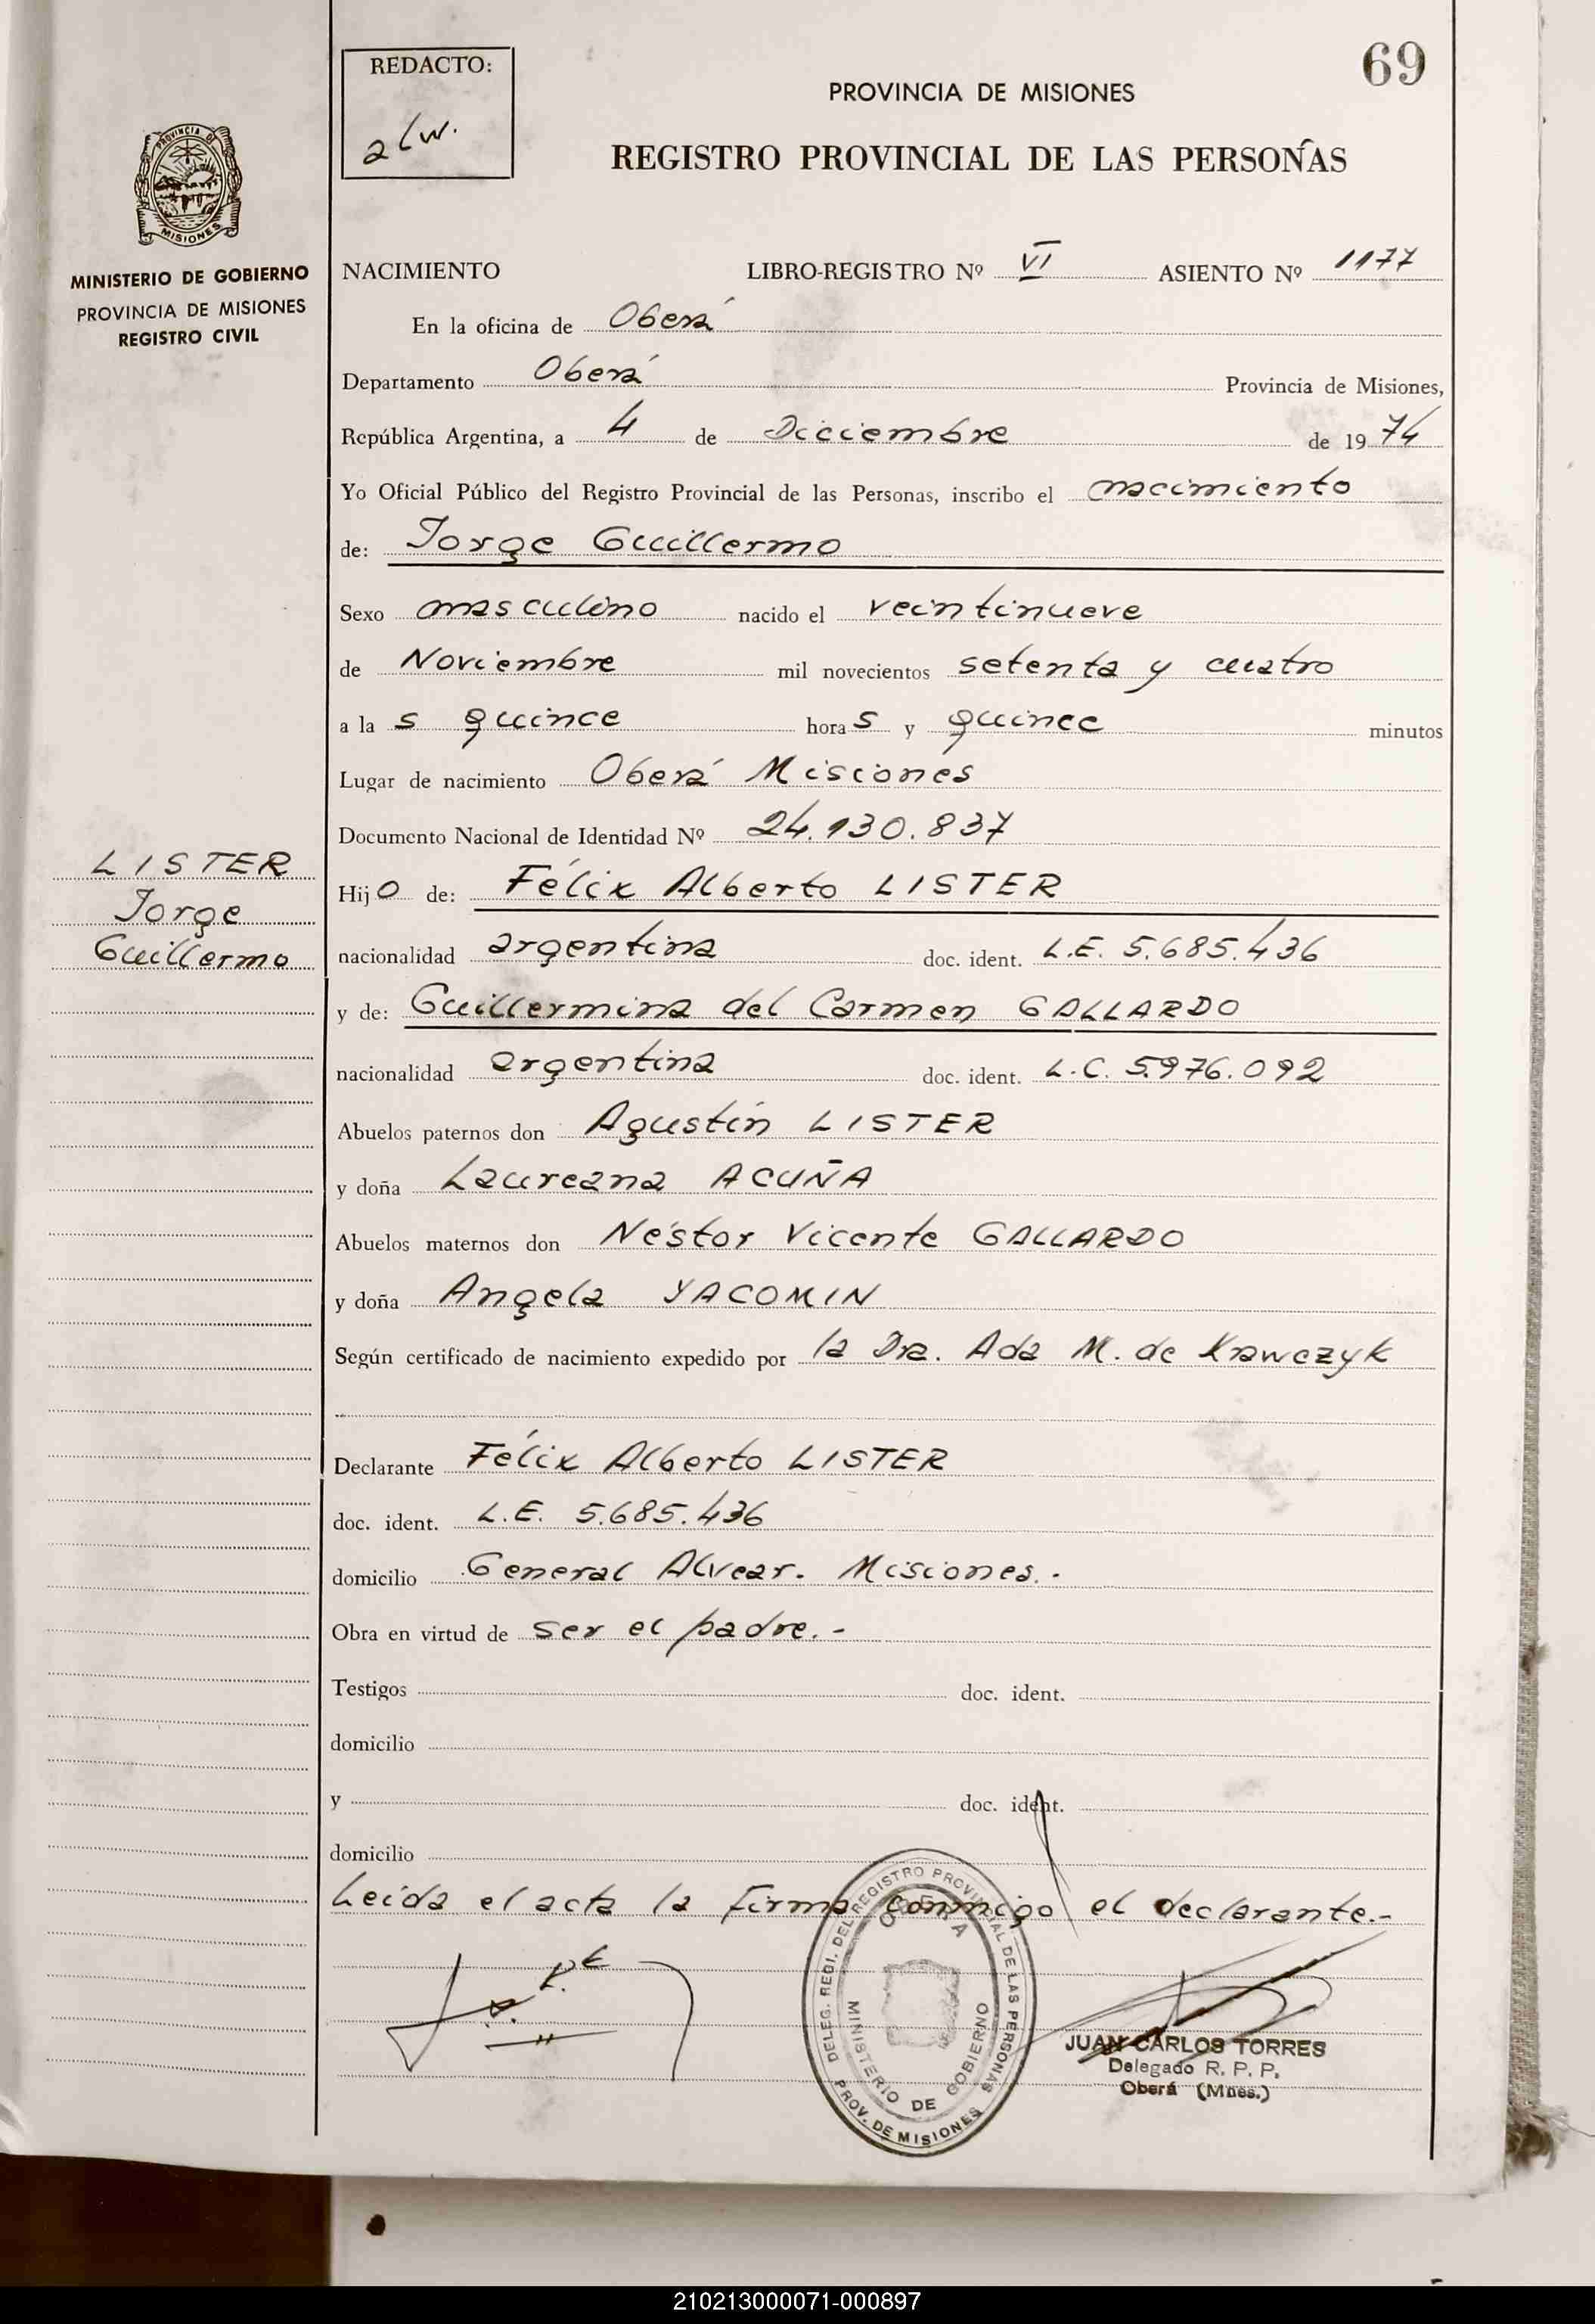 69
REDACTO:
alw.
PROVINCIA DE MISIONES
REGISTRO PROVINCIAL DE LAS PERSONAS
PROVINCIA DE
MISIONES
MINISTERIO DE GOBIERNO
PROVINCIA DE MISIONES
REGISTRO CIVIL
NACIMIENTO LIBRO-REGISTRO Nº VI ASIENTO Nº 1177
En la oficina de Oberá
Departamento Oberá Provincia de Misiones,
República Argentina, a 4 de Diciembre de 1974
Yo Oficial Público del Registro Provincial de las Personas, inscribo el nacimiento
de: Jorge Guillermo
Sexo masculino nacido el veintinueve
de Noviembre mil novecientos setenta y cuatro
a las quince horas y quince minutos
Lugar de nacimiento Oberá Misiones
Documento Nacional de Identidad Nº 24.130.837
LISTER
Jorge
Guillermo
Hijo de: Félix Alberto LISTER
nacionalidad argentina doc. ident. L.E. 5.685.436
y de: Guillermina del Carmen GALLARDO
nacionalidad argentina doc. ident. L.C. 5.976.092
Abuelos paternos don Agustín LISTER
y doña Laureana ACUÑA
Abuelos maternos don Néstor Vicente GALLARDO
y doña Angela YACOMIN
Según certificado de nacimiento expedido por la Dra. Ada M. de Krawczyk
Declarante Félix Alberto LISTER
doc. ident. L.E. 5.685.436
domicilio General Alvear. Misiones.-
Obra en virtud de ser el padre.-
Testigos doc. ident.
domicilio
y doc. ident.
domicilio
Leída el acta la firma conmigo el declarante.-
DELEG. REGI. DEL REGISTRO PROVINCIAL DE LAS PERSONAS
OBERA
MINISTERIO DE GOBIERNO
PROV. DE MISIONES
JUAN CARLOS TORRES
Delegado R. P. P.
Oberá (Mnes.)
210213000071-000897